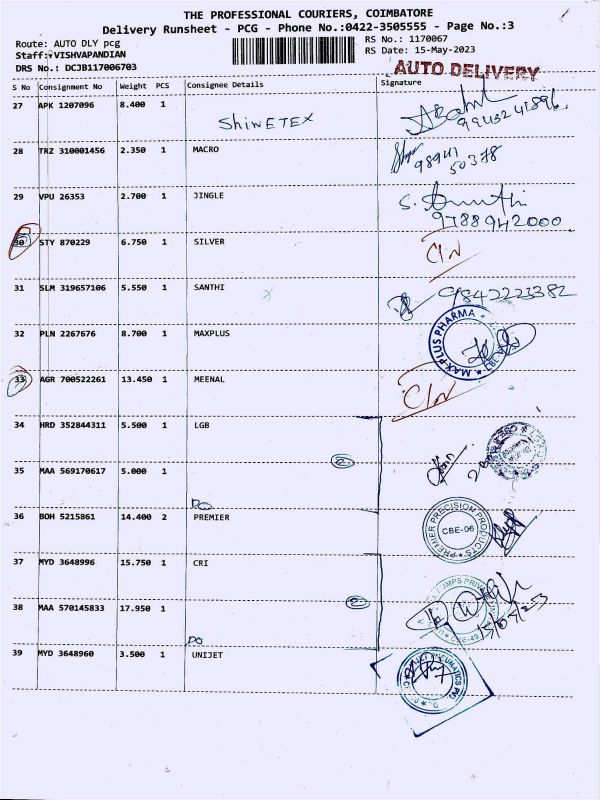 THE PROFESSIONAL COURIERS, COIMBATORE
Delivery Runsheet - PCG - Phone No.:0422-3505555 - Page No.:3
Route: AUTO DLY pcg RS No.: 1170067
Staff:-VISHVAPANDIAN RS Date: 15-May-2023
DRS No.: DCJB117006703 AUTO DELIVERY
S No Consignment No Weight PCS Consignee Details Signature
27 APK 1207096 8.400 1 ShiWETEX
28 TRZ 310001456 2.350 1 MACRO 98941
50378
29 VPU 26353 2.700 1 JINGLE S.
9788942000.
30 STY 870229 6.750 1 SILVER C/N
31 SLM 319657106 5.550 1 SANTHI 9842223382
32 PLN 2267676 8.700 1 MAXPLUS MAX PLUS PHARMA
33 AGR 700522261 13.450 1 MEENAL C/N
34 HRD 352844311 5.500 1 LGB
②
35 MAA 569170617 5.000 1
DO
36 BOH 5215861 14.400 2 PREMIER PREMIER PRECISION PRODUCTS CBE-06
37 MYD 3648996 15.750 1 CRI
②
38 MAA 570145833 17.950 1 15/05/23
DO
39 MYD 3648960 3.500 1 UNIJET